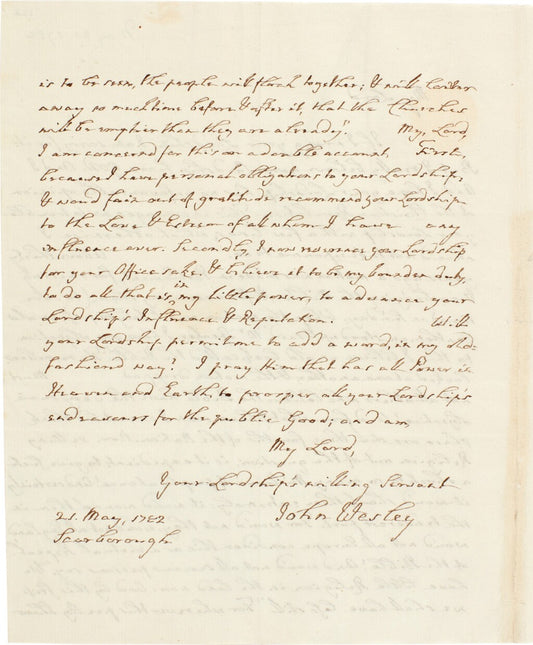 is to be seen, the people will flock together; & will loiter
away so much time before & after it, that the Churches
will be emptier than they are already! My Lord,
I am concerned for this on a double account. First,
because I have personal obligations to your Lordship,
& would fain out of gratitude recommend your Lordship
to the Love & Esteem of all whom I have any
influence over. Secondly, I now reverence your Lordship
for your Office sake, & believe it to be my bounden duty,
to do all that is in my little power, to advance your
Lordship's Influence & Reputation. Will
your Lordship permit me to add a word, in my old-
fashiond way? I pray Him that has all Power in
Heaven and Earth, to prosper all your Lordship's
endeavours for the public Good; and am
My Lord,
Your Lordship's willing Servant
John Wesley
21. May, 1782
Scarborough